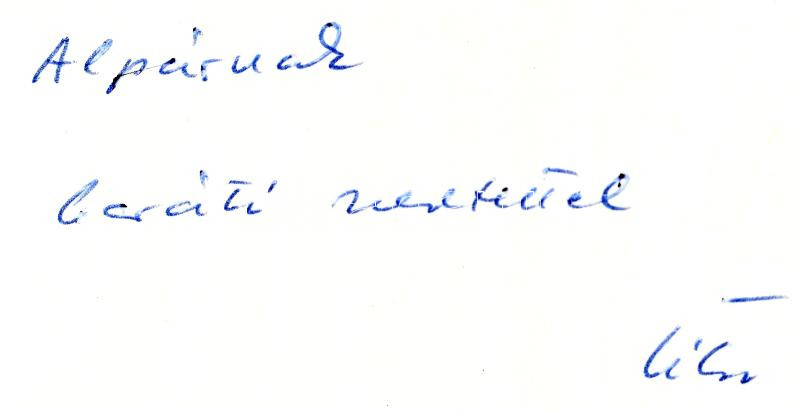 Alpárnak
baráti szeretettel
Tibor